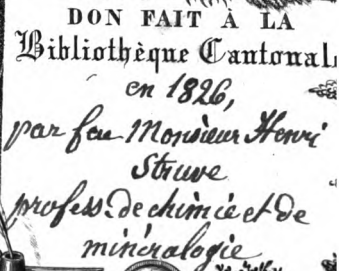 DON FAIT À LA
Bibliothèque Cantonal
en 1826,
par feu Monsieur Henri
Struve
profess. de chimie et de
minéralogie